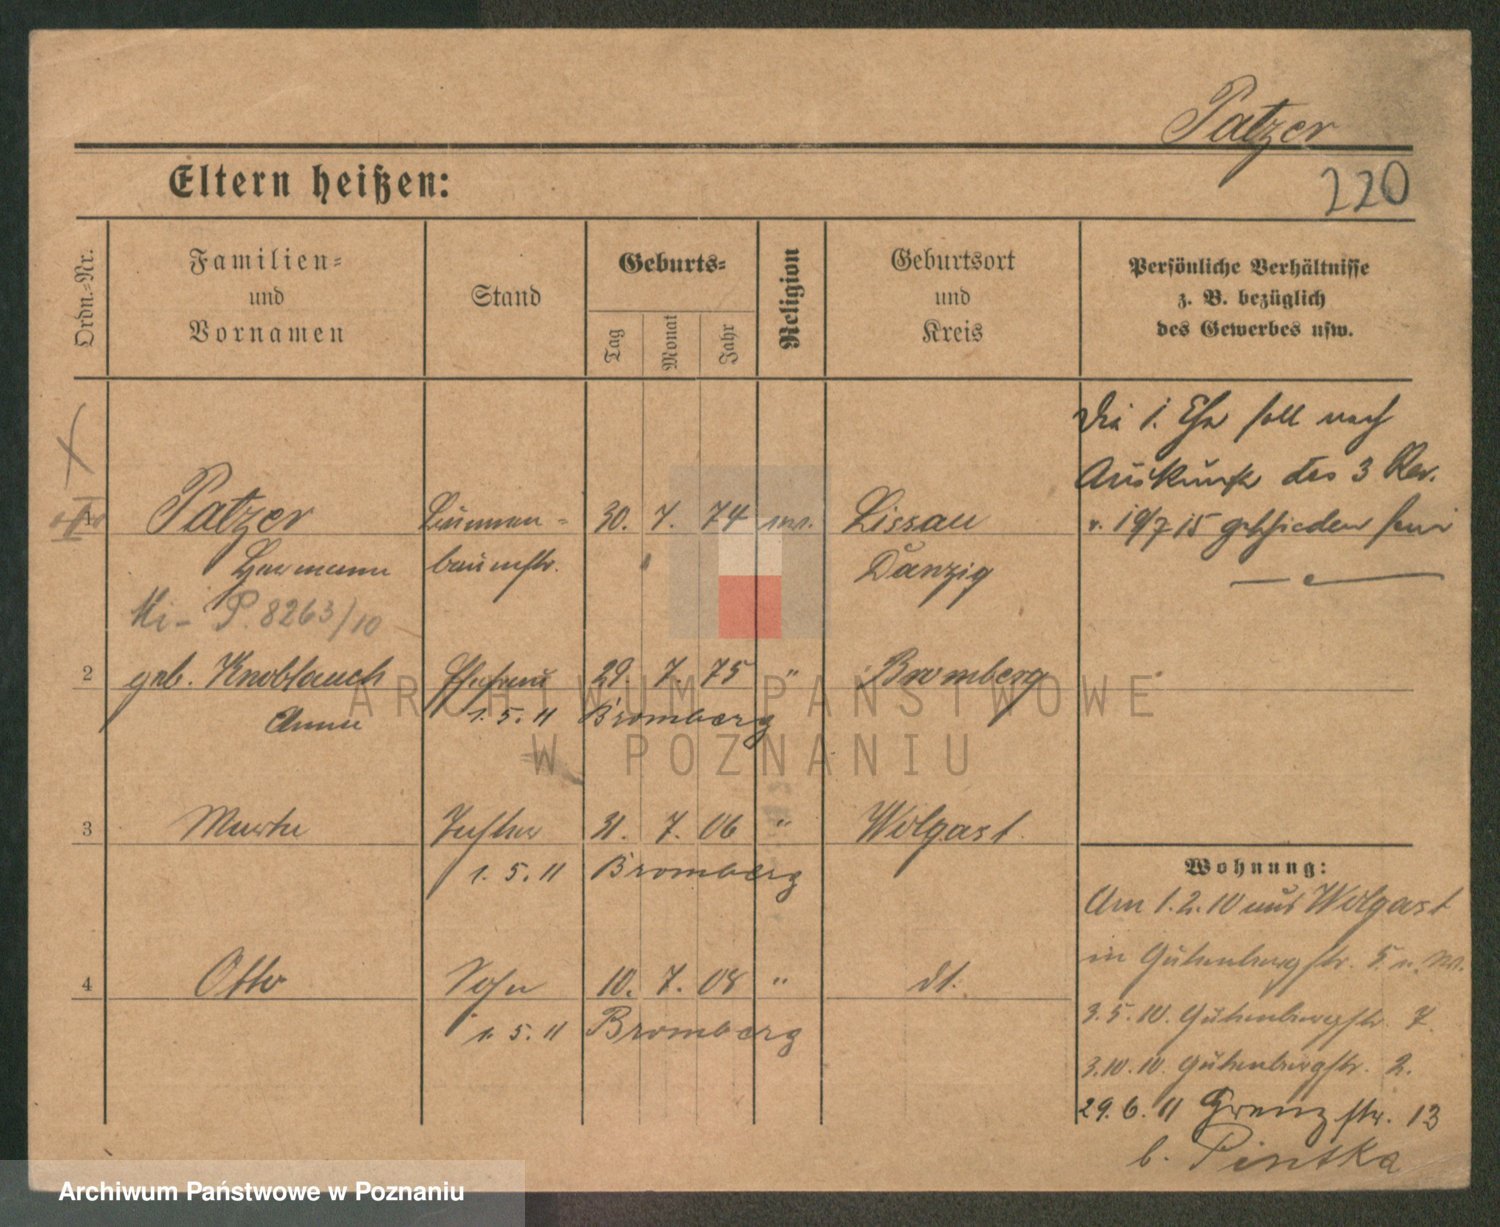 Patzer
220
Eltern heißen:
Ordn.-Nr.
Familien-
und
Vornamen
Stand
Geburts-
Tag
Monat
Jahr
Religion
Geburtsort
und
Kreis
Persönliche Verhältnisse
z. B. bezüglich
des Gewerbes usw.
Die 1. Ehe soll nach
Auskunft des 3 Rev.
v. 19/7 15 geschieden sein
1 Patzer 30. 7. 74 Lissau
Hermann baumstr. Danzig
P. 8263/10
2 geb. Knoblauch Ehefrau 29. 7. 75 " Bromberg
Anna 1. 5. 11 Bromberg
3 Martha Tochter 31. 7. 06 " Wolgast
1. 5. 11 Bromberg
4 Otto Sohn 10. 7. 08 " dt.
1. 5. 11 Bromberg
Wohnung:
Am 1. 2. 10 aus Wolgast
in Gutenbergstr. 5
3. 5. 10. Gutenbergstr. 7.
3. 10. 10. Gutenbergstr. 2.
29. 6. 11 Grenzstr. 13
b. Pintka
ARCHIWUM PAŃSTWOWE
W POZNANIU
Archiwum Państwowe w Poznaniu